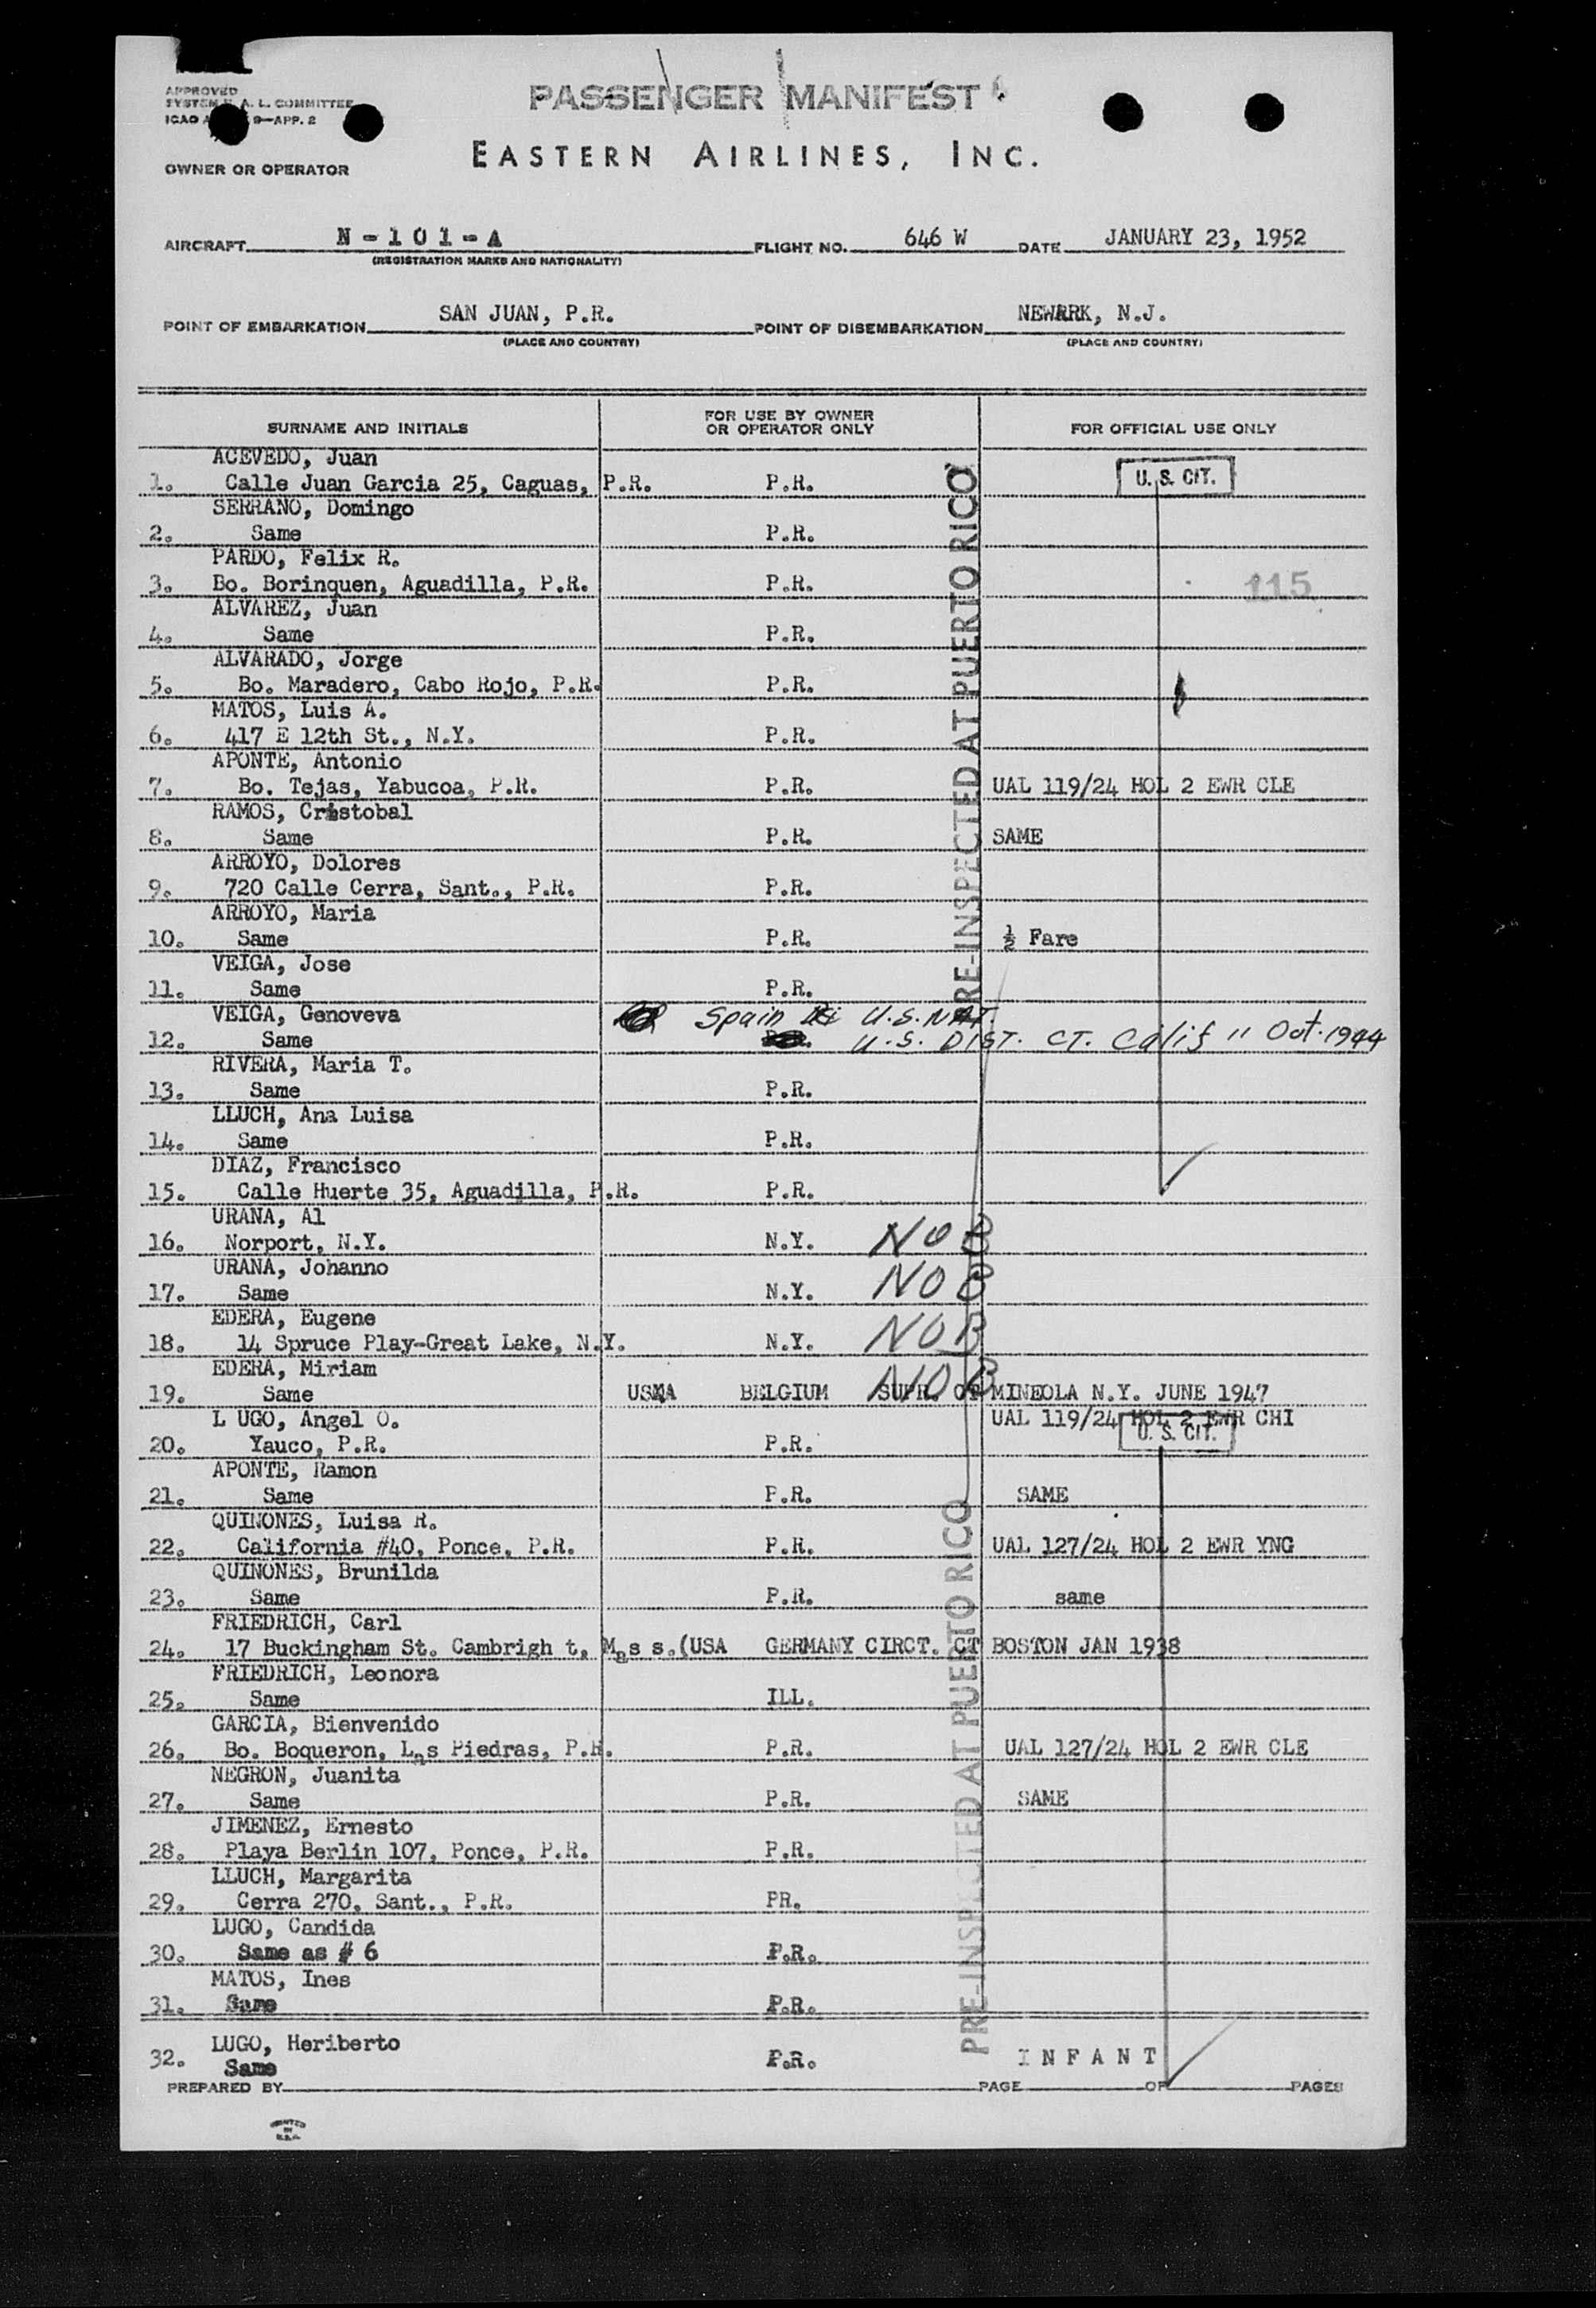 APPROVED
SYSTEM A. L. COMMITTEE
ICAO A 9—APP. 2
PASSENGER MANIFEST
EASTERN AIRLINES, INC.
OWNER OR OPERATOR
AIRCRAFT N - 1 0 1 - A FLIGHT NO. 646 W DATE JANUARY 23, 1952
(REGISTRATION MARKS AND NATIONALITY)
POINT OF EMBARKATION SAN JUAN, P.R. POINT OF DISEMBARKATION NEWARK, N.J.
(PLACE AND COUNTRY) (PLACE AND COUNTRY)
SURNAME AND INITIALS FOR USE BY OWNER OR OPERATOR ONLY FOR OFFICIAL USE ONLY
ACEVEDO, Juan
1. Calle Juan Garcia 25, Caguas, P.R. P.R. U. S. CIT.
SERRANO, Domingo
2. Same P.R.
PARDO, Felix R.
3. Bo. Borinquen, Aguadilla, P.R. P.R. 115
ALVAREZ, Juan
4. Same P.R.
ALVARADO, Jorge
5. Bo. Maradero, Cabo Rojo, P.R. P.R.
MATOS, Luis A.
6. 417 E 12th St., N.Y. P.R.
APONTE, Antonio
7. Bo. Tejas, Yabucoa, P.R. P.R. UAL 119/24 HOL 2 EWR CLE
RAMOS, Cristobal
8. Same P.R. SAME
ARROYO, Dolores
9. 720 Calle Cerra, Sant., P.R. P.R.
ARROYO, Maria
10. Same P.R. ½ Fare
VEIGA, Jose
11. Same P.R.
VEIGA, Genoveva Spain U.S. NAT.
12. Same U.S. DIST. CT. Calif 11 Oct. 1944
RIVERA, Maria T.
13. Same P.R.
LLUCH, Ana Luisa
14. Same P.R.
DIAZ, Francisco
15. Calle Huerte 35, Aguadilla, P.R. P.R.
URANA, Al
16. Norport, N.Y. N.Y. NOB
URANA, Johanno
17. Same N.Y. NOB
EDERA, Eugene
18. 14 Spruce Play-Great Lake, N.Y. N.Y. NOB
EDERA, Miriam
19. Same USNA BELGIUM SUPR. CT MINEOLA N.Y. JUNE 1947 NOB
L UGO, Angel O. UAL 119/24 HOL 2 EWR CHI
20. Yauco, P.R. P.R. U. S. CIT.
APONTE, Ramon
21. Same P.R. SAME
QUINONES, Luisa R.
22. California #40, Ponce, P.R. P.R. UAL 127/24 HOL 2 EWR YNG
QUINONES, Brunilda
23. Same P.R. same
FRIEDRICH, Carl
24. 17 Buckingham St. Cambrigh t, Mas s.(USA GERMANY CIRCT. CT BOSTON JAN 1938
FRIEDRICH, Leonora
25. Same ILL.
GARCIA, Bienvenido
26. Bo. Boqueron, Las Piedras, P.R. P.R. UAL 127/24 HOL 2 EWR CLE
NEGRON, Juanita
27. Same P.R. SAME
JIMENEZ, Ernesto
28. Playa Berlin 107, Ponce, P.R. P.R.
LLUCH, Margarita
29. Cerra 270, Sant., P.R. PR.
LUGO, Candida
30. Same as # 6 P.R.
MATOS, Ines
31. Same P.R.
LUGO, Heriberto
32. Same P.R. I N F A N T
PRE-INSPECTED AT PUERTO RICO
PRE-INSPECTED AT PUERTO RICO
PREPARED BY PAGE OF PAGES
PRINTED
IN
U.S.A.